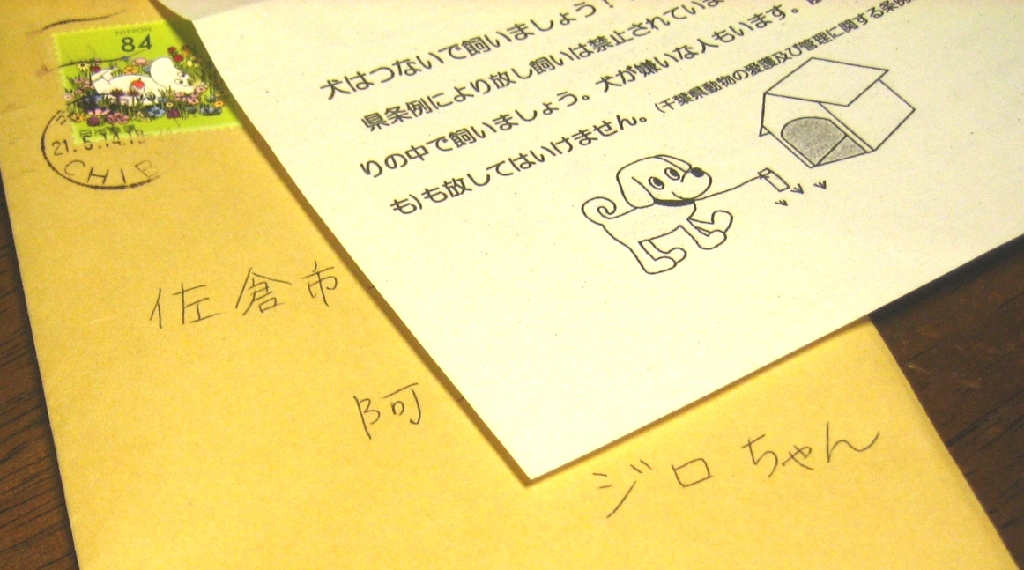 NIPPON
84
21.5.14.15
CHIB
犬はつないで飼いましょう！
県条例により放し飼いは禁止されていま
りの中で飼いましょう。犬が嫌いな人もいます。
も)も放してはいけません。(千葉県動物の愛護及び管理に関する条例
佐倉市
阿
ジロちゃん